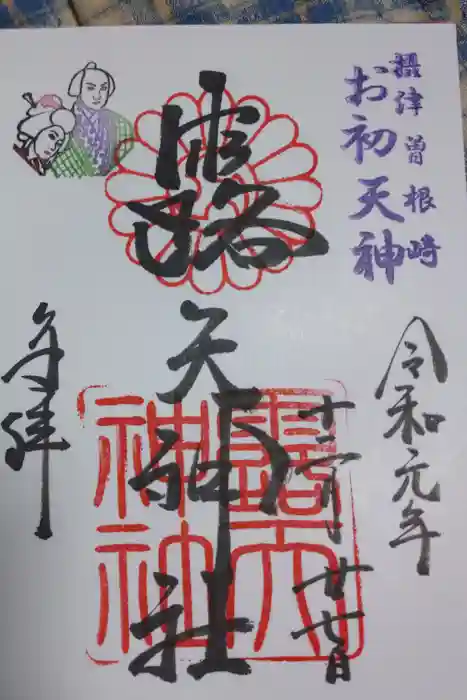 摂津曽根崎
お初天神
令和元年
十二月廿七日
露天神社
奉拝
露天
神社